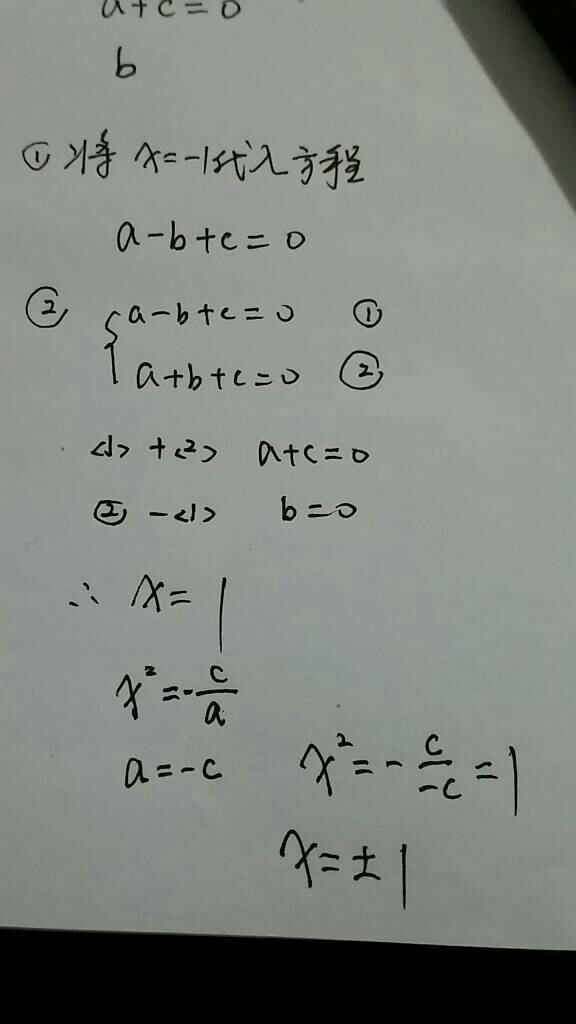 a+c=0
b
① 将 x=-1代入方程
a-b+c=0
② { a-b+c=0 ①
a+b+c=0 ②
<1> + <2> a+c=0
② - <1> b=0
∴ x= 1
x²=-c/a
a=-c x²=-c/-c=1
x=±1